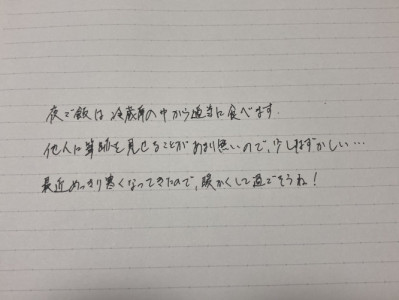 夜ご飯は冷蔵庫の中から適当に食べます.
他人に筆跡を見せることがあまり無いので,少しはずかしい…
最近めっきり寒くなってきたので,暖かくして過ごそうね!